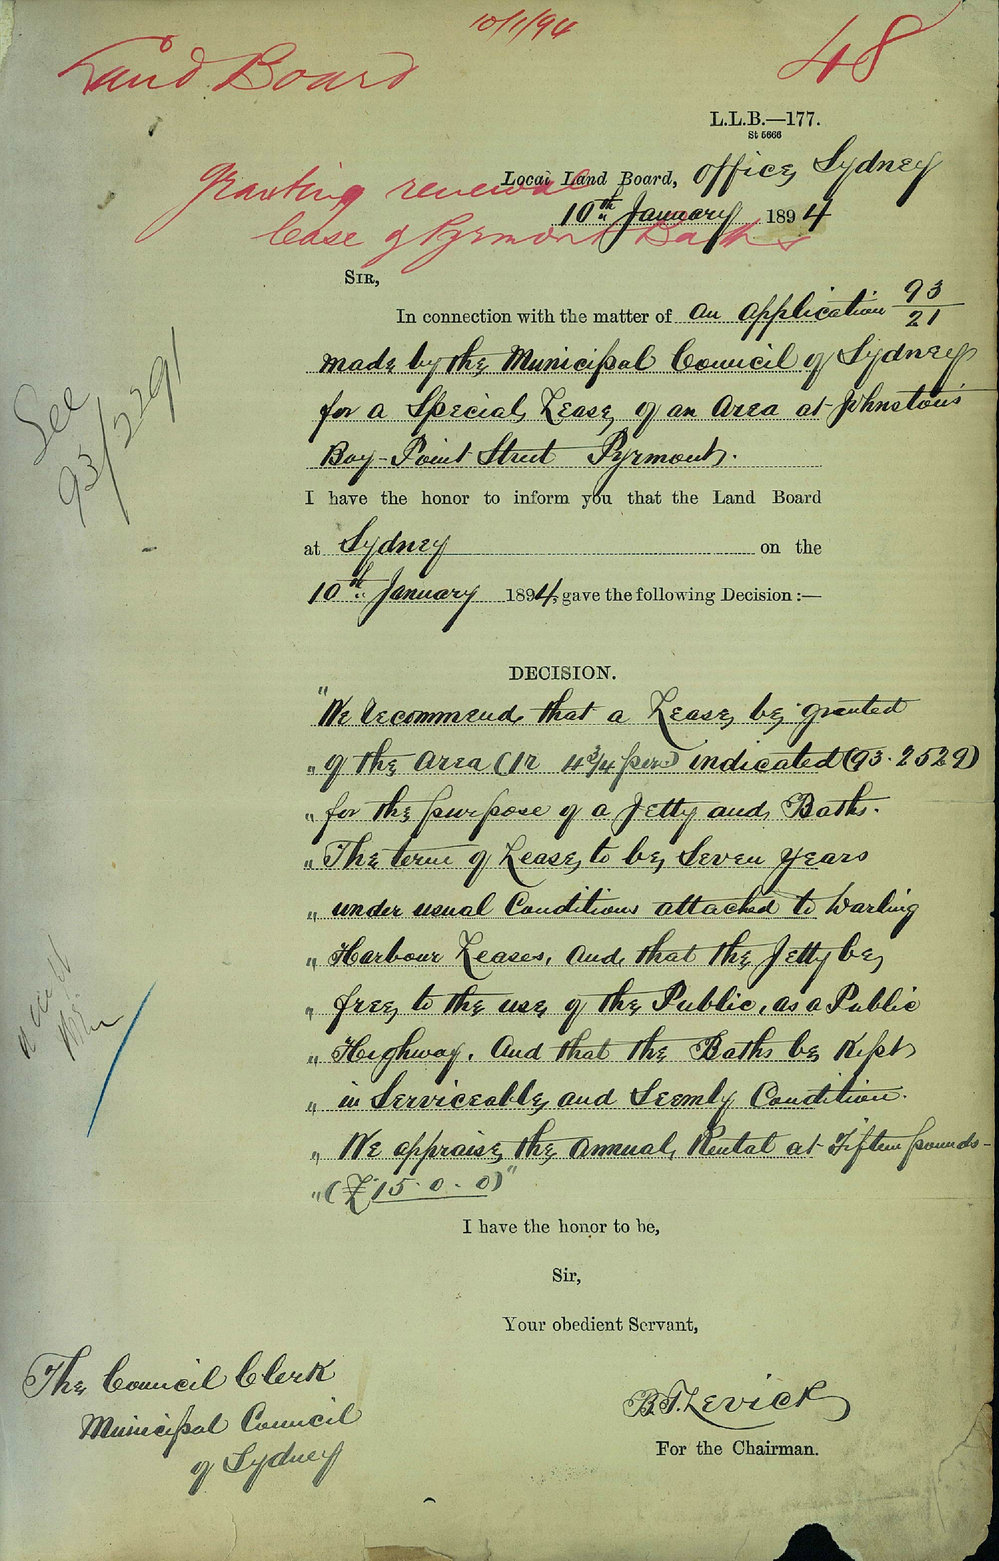 10/1/94
Land Board
48
L.L.B.—177.
St 5666
Local Land Board, Office, Sydney
10th January 1894
Granting renewal
lease of Pyrmont Baths
SIR,
In connection with the matter of an application 93/21
made by the Municipal Council of Sydney
for a Special Lease of an Area at Johnston's
Bay - Point Street Pyrmont.
I have the honor to inform you that the Land Board
at Sydney on the
10th January 1894, gave the following Decision:—
See
93/2291
DECISION.
"We recommend that a Lease be granted
" of the Area (1r 4 3/4 per) indicated (93.2529)
" for the purpose of a Jetty and Baths.
" The term of Lease to be Seven Years
" under usual Conditions attached to Darling
" Harbour Leases, And that the Jetty be
" free to the use of the Public, as a Public
" Highway. And that the Baths be kept
" in Serviceable and Seemly Condition.
" We appraise the Annual Rental at Fifteen pounds -
" (£15.0.0)"
I have the honor to be,
Sir,
Your obedient Servant,
The Council Clerk
Municipal Council
of Sydney
B.T. Levick
For the Chairman.